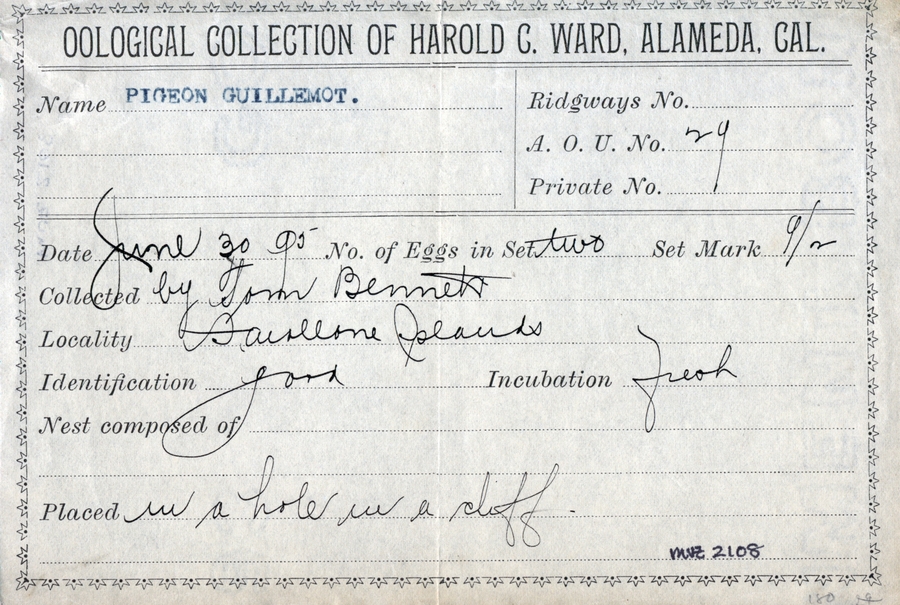 OOLOGICAL COLLECTION OF HAROLD C. WARD, ALAMEDA, CAL.
Name PIGEON GUILLEMOT.
Ridgways No.
A. O. U. No. 29
Private No.
Date June 30 95 No. of Eggs in Set two Set Mark 9/2
Collected by Tom Bennett
Locality Farollone Islands
Identification good Incubation fresh
Nest composed of
Placed in a hole in a cliff.
mvz 2108